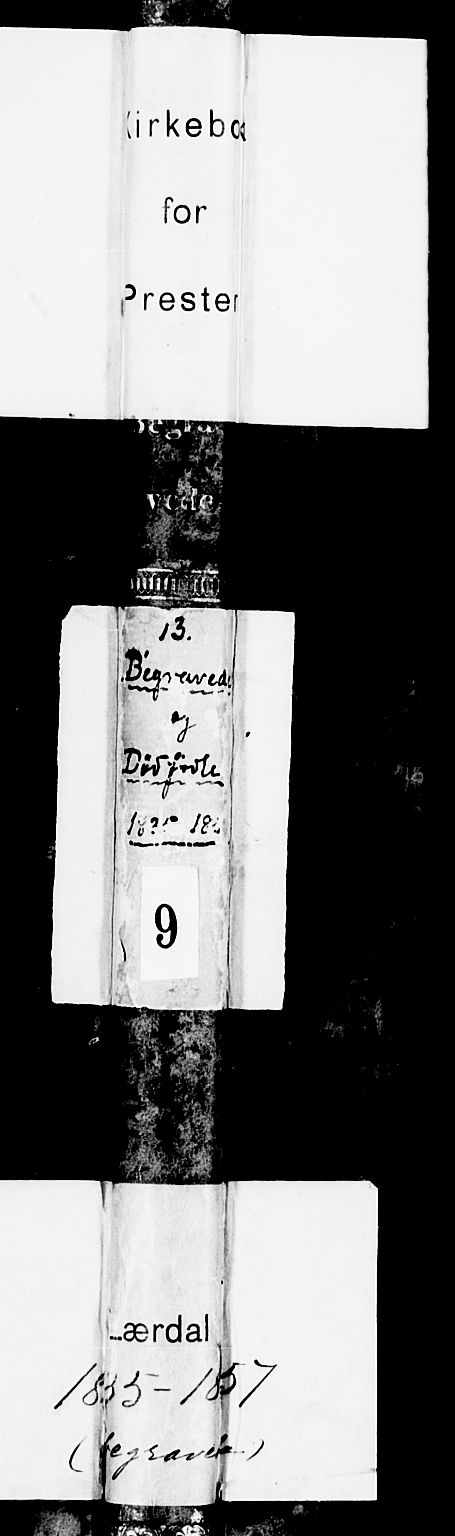 Kirkebo
for
Prester
Begra
vede
13.
Begravede
og
Dødfødte
1835 18
9
Lærdal
1835-1857
(begravede)